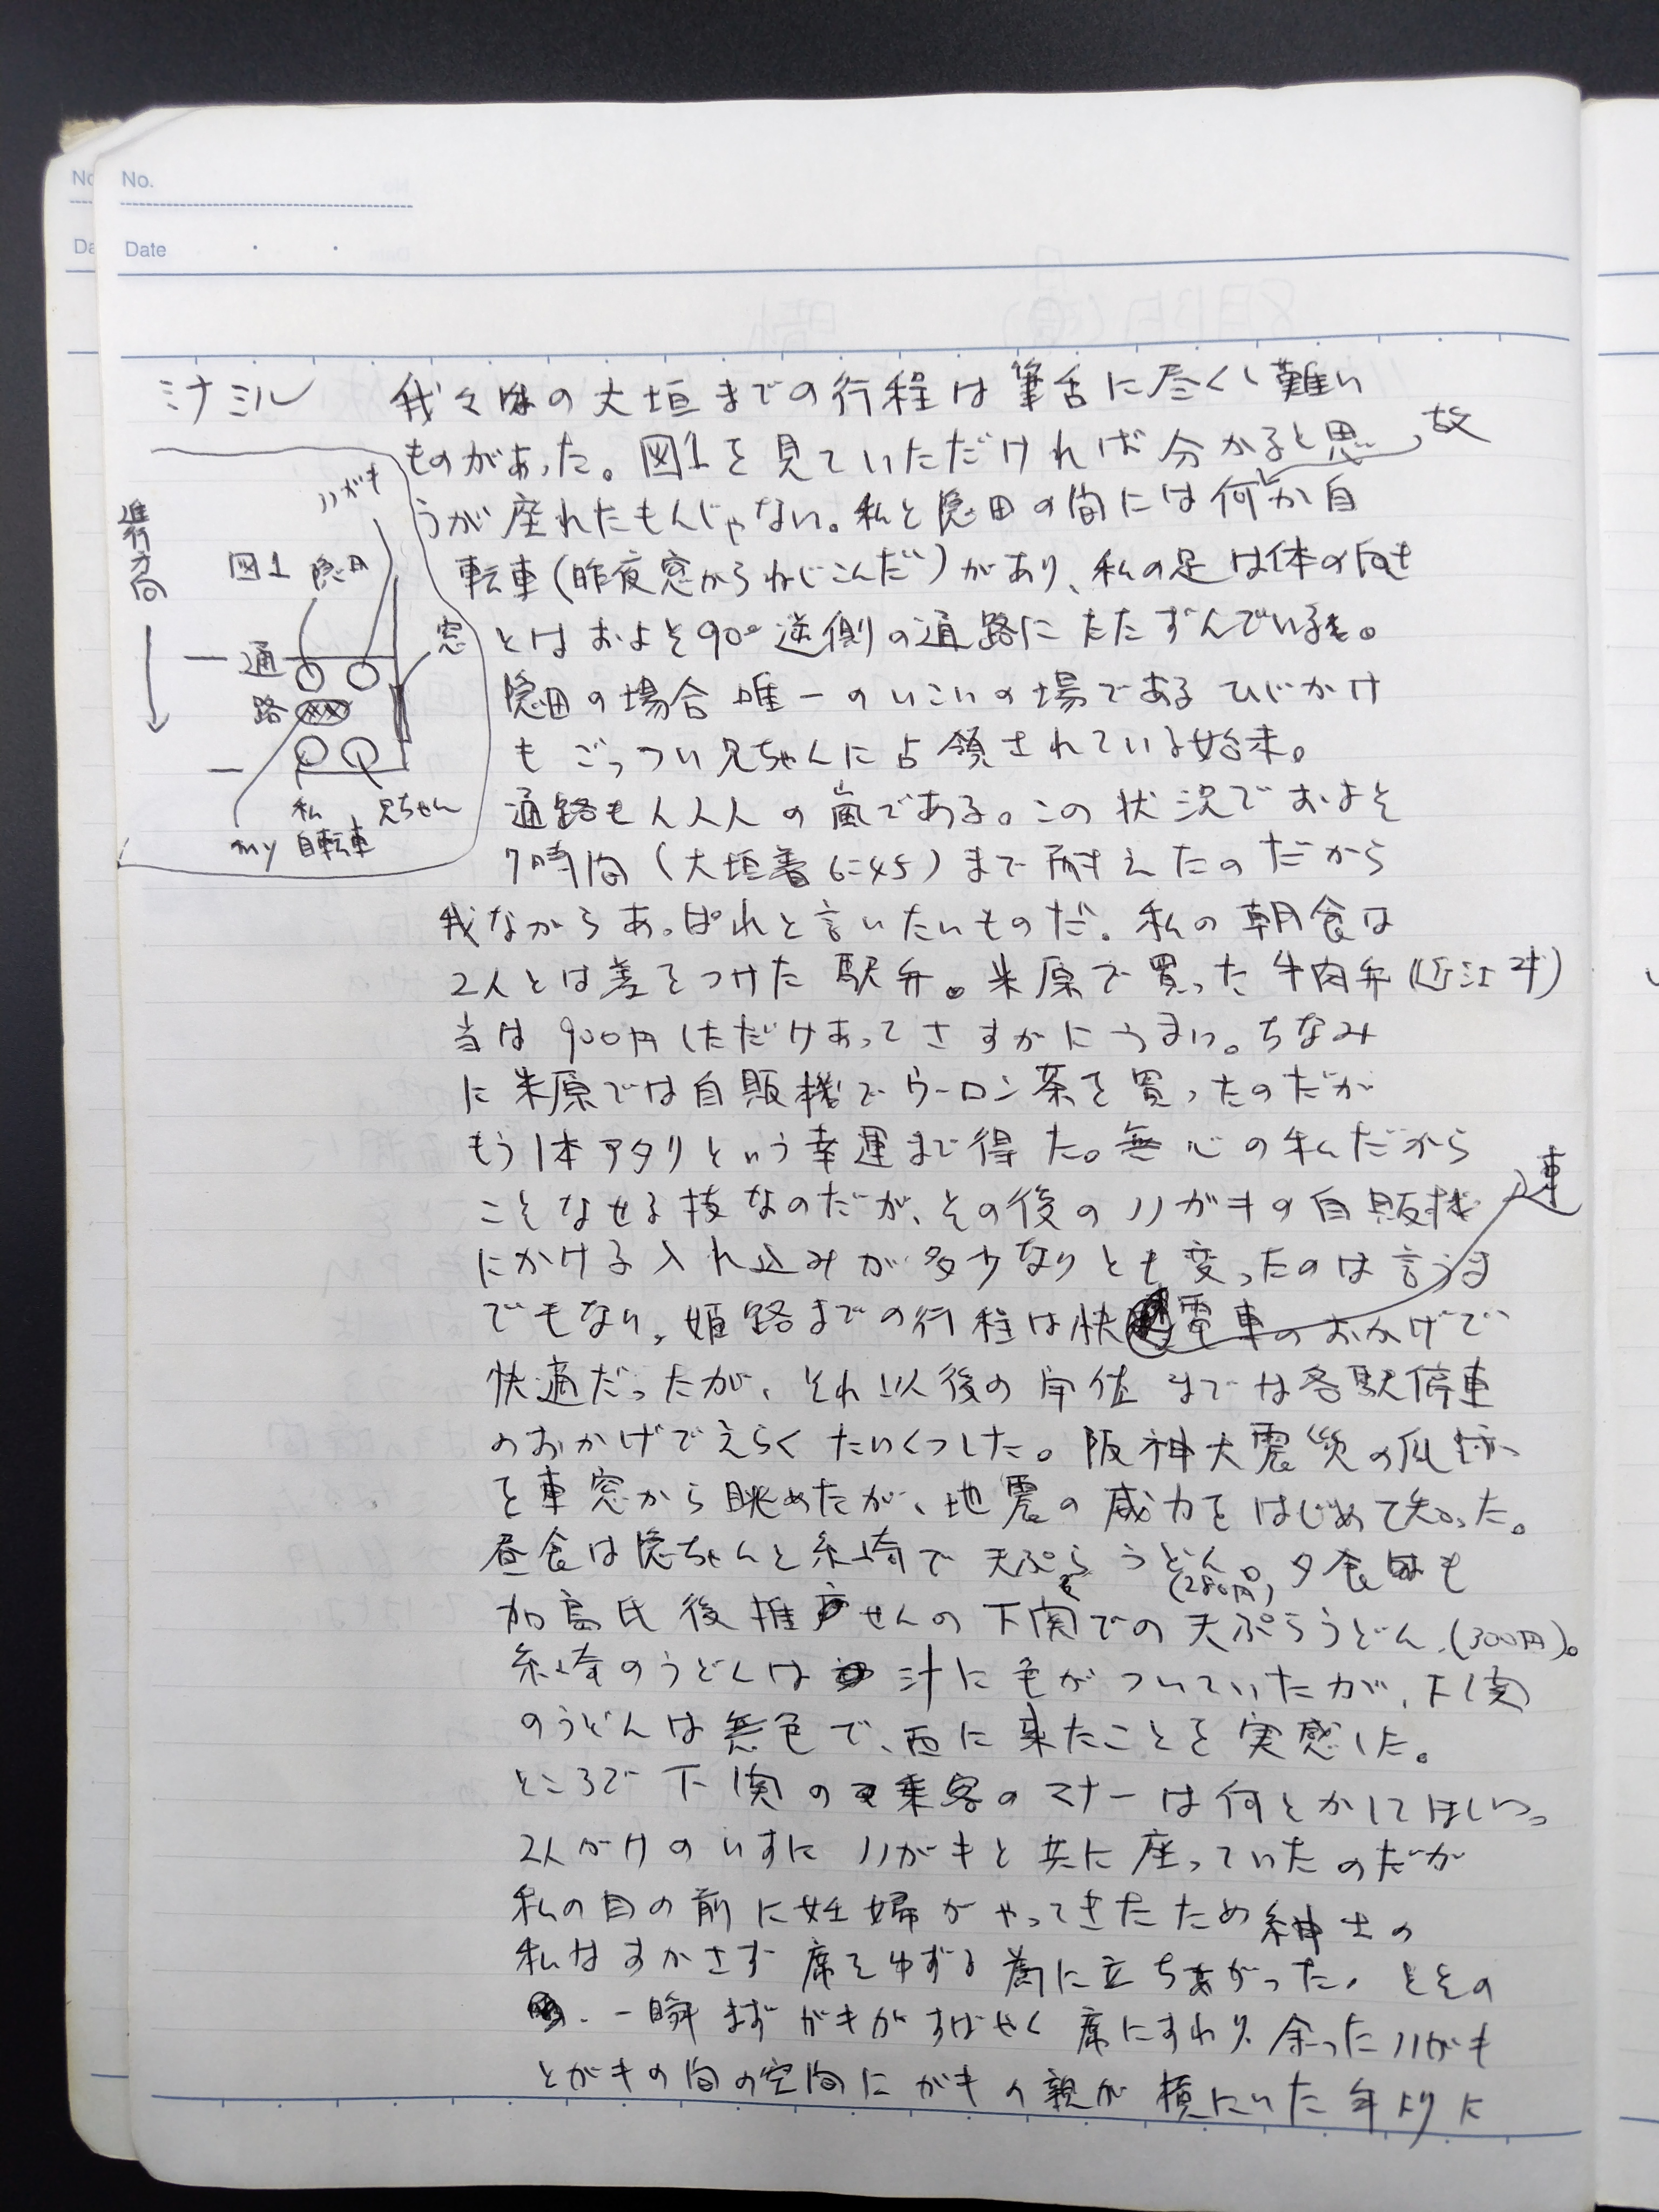 No.
Date
ミナミル
我々の大垣までの行程は筆舌に尽くし難い
ものがあった。図1を見ていただければ分かると思
うが座れたもんじゃない。私と隠田の間には何故か自
転車(昨夜窓からねじこんだ)があり、私の足は体の向き
とはおよそ90°逆側の通路にたたずんでいる。
隠田の場合唯一のいこいの場であるひじかけ
もごっつい兄ちゃんに占領されている始末。
通路も人人人の嵐である。この状況でおよそ
7時間(大垣着6:45)まで耐えたのだから
我ながらあっぱれと言いたいものだ。私の朝食は
2人とは差をつけた駅弁。米原で買った牛肉弁(近江牛)
当は900円しただけあってさすがにうまい。ちなみ
に米原では自販機でウーロン茶を買ったのだが
もう1本アタリという幸運まで得た。無心の私だから
こそなせる技なのだが、その後のハガキの自販機
にかける入れ込みが多少なりとも変ったのは言うま
でもない。姫路までの行程は快速電車のおかげで
快適だったが、それ以後の宇佐までは各駅停車
のおかげでえらくたいくつした。阪神大震災の爪跡
を車窓から眺めたが、地震の威力をはじめて知った。
昼食は隠ちゃんと糸崎で天ぷらうどん。(280円)夕食も
加島氏後推せんの下関での天ぷらうどん(300円)。
糸崎のうどんは汁に色がついていたが、下関
のうどんは無色で、西に来たことを実感した。
ところで下関の乗客のマナーは何とかしてほしい。
2人がけのいすにハガキと共に座っていたのだが
私の目の前に妊婦がやってきたため紳士の
私はすかさず席をゆずる為に立ちあがった。とその
一瞬まずがキがすばやく席にすわり、余ったハがキ
とがキの間の空間にがキの親が横にいた年よりに
図1
進行方向
ハがキ
隠田
窓
通
路
私
兄ちゃん
my 自転車